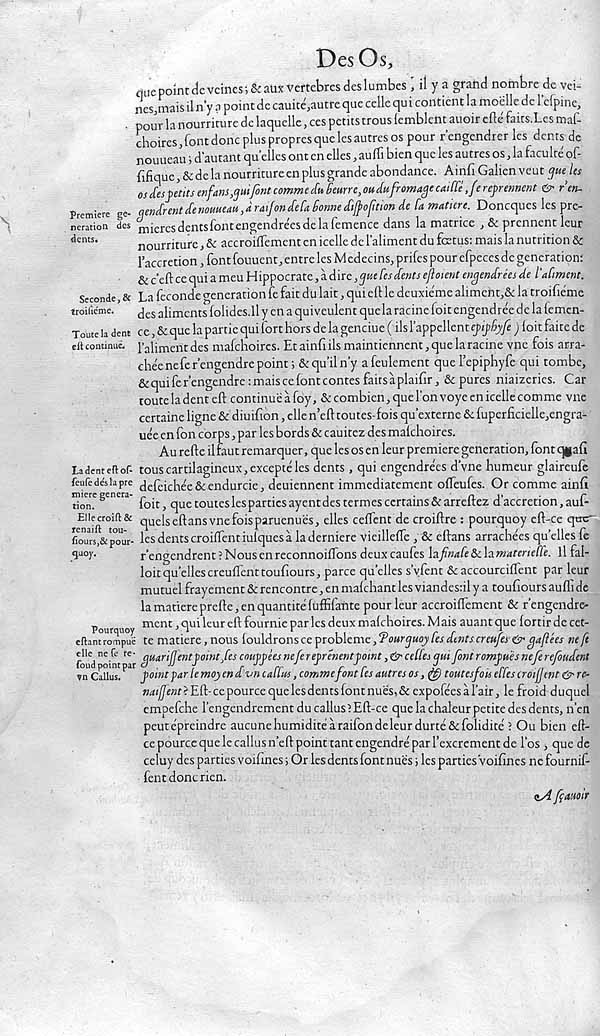 Des Os,
que point de veines; & aux vertebres des lumbes, il y a grand nombre de vei-
nes, mais il n'y a point de cauité, autre que celle qui contient la moëlle de l'eſpine,
pour la nourriture de laquelle, ces petits trous ſemblent auoir eſté faits. Les maſ-
choires, ſont donc plus propres que les autres os pour r'engendrer les dents de
nouueau; d'autant qu'elles ont en elles, auſſi bien que les autres os, la faculté oſ-
ſifique, & de la nourriture en plus grande abondance. Ainſi Galien veut que les
os des petits enfans, qui ſont comme du beurre, ou du fromage caillé, ſe reprennent & r'en-
gendrent de nouueau, à raiſon de ſa bonne diſpoſition de la matiere. Doncques les pre-
mieres dents ſont engendrées de la ſemence dans la matrice, & prennent leur
nourriture, & accroiſſement en icelle de l'aliment du fœtus: mais la nutrition &
l'accretion, ſont ſouuent, entre les Medecins, priſes pour eſpeces de generation:
& c'eſt ce qui a meu Hippocrate, à dire, que les dents eſtoient engendrées de l'aliment.
La ſeconde generation ſe fait du lait, qui eſt le deuxiéme aliment, & la troiſiéme
des aliments ſolides. Il y en a qui veulent que la racine ſoit engendrée de la ſemen-
ce, & que la partie qui ſort hors de la genciue (ils l'appellent epiphyſe) ſoit faite de
l'aliment des maſchoires. Et ainſi ils maintiennent, que la racine vne fois arra-
chée ne ſe r'engendre point; & qu'il n'y a ſeulement que l'epiphyſe qui tombe,
& qui ſe r'engendre: mais ce ſont contes faits à plaiſir, & pures niaizeries. Car
toute la dent eſt continuë à ſoy, & combien, que l'on voye en icelle comme vne
certaine ligne & diuiſion, elle n'eſt toutes-fois qu'externe & ſuperficielle, engra-
uée en ſon corps, par les bords & cauitez des maſchoires.
Au reſte il faut remarquer, que les os en leur premiere generation, ſont quaſi
tous cartilagineux, excepté les dents, qui engendrées d'vne humeur glaireuſe
deſeichée & endurcie, deuiennent immediatement oſſeuſes. Or comme ainſi
ſoit, que toutes les parties ayent des termes certains & arreſtez d'accretion, auſ-
quels eſtans vne fois paruenuës, elles ceſſent de croiſtre: pourquoy eſt-ce que
les dents croiſſent iuſques à la derniere vieilleſſe, & eſtans arrachées qu'elles ſe
r'engendrent? Nous en reconnoiſſons deux cauſes la finale & la materielle. Il fal-
loit qu'elles creuſſent touſiours, parce qu'elles s'vſent & accourciſſent par leur
mutuel frayement & rencontre, en maſchant les viandes: il y a touſiours auſſi de
la matiere preſte, en quantité ſuffiſante pour leur accroiſſement & r'engendre-
ment, qui leur eſt fournie par les deux maſchoires. Mais auant que ſortir de cet-
te matiere, nous ſouldrons ce probleme, Pourquoy les dents creuſes & gaſtées ne ſe
guariſſent point, les couppées ne ſe reprénent point, & celles qui ſont rompuës ne ſe reſoudent
point par le moyen d'vn callus, comme font les autres os, & toutesfois elles croiſſent & re-
naiſſent? Eſt-ce pource que les dents ſont nuës, & expoſées à l'air, le froid duquel
empeſche l'engendrement du callus? Eſt-ce que la chaleur petite des dents, n'en
peut épreindre aucune humidité à raiſon de leur durté & ſolidité? Ou bien eſt-
ce pource que le callus n'eſt point tant engendré par l'excrement de l'os, que de
celuy des parties voiſines; Or les dents ſont nuës; les parties voiſines ne fourniſ-
ſent donc rien.
A ſçauoir
Premiere ge-
neration des
dents.
Seconde, &
troiſiéme.
Toute la dent
eſt continuë.
La dent eſt oſ-
ſeuſe dés la pre
miere genera-
tion.
Elle croiſt &
renaiſt tou-
ſiours, & pour-
quoy.
Pourquoy
eſtant rompuë
elle ne ſe re-
ſoud point par
vn Callus.